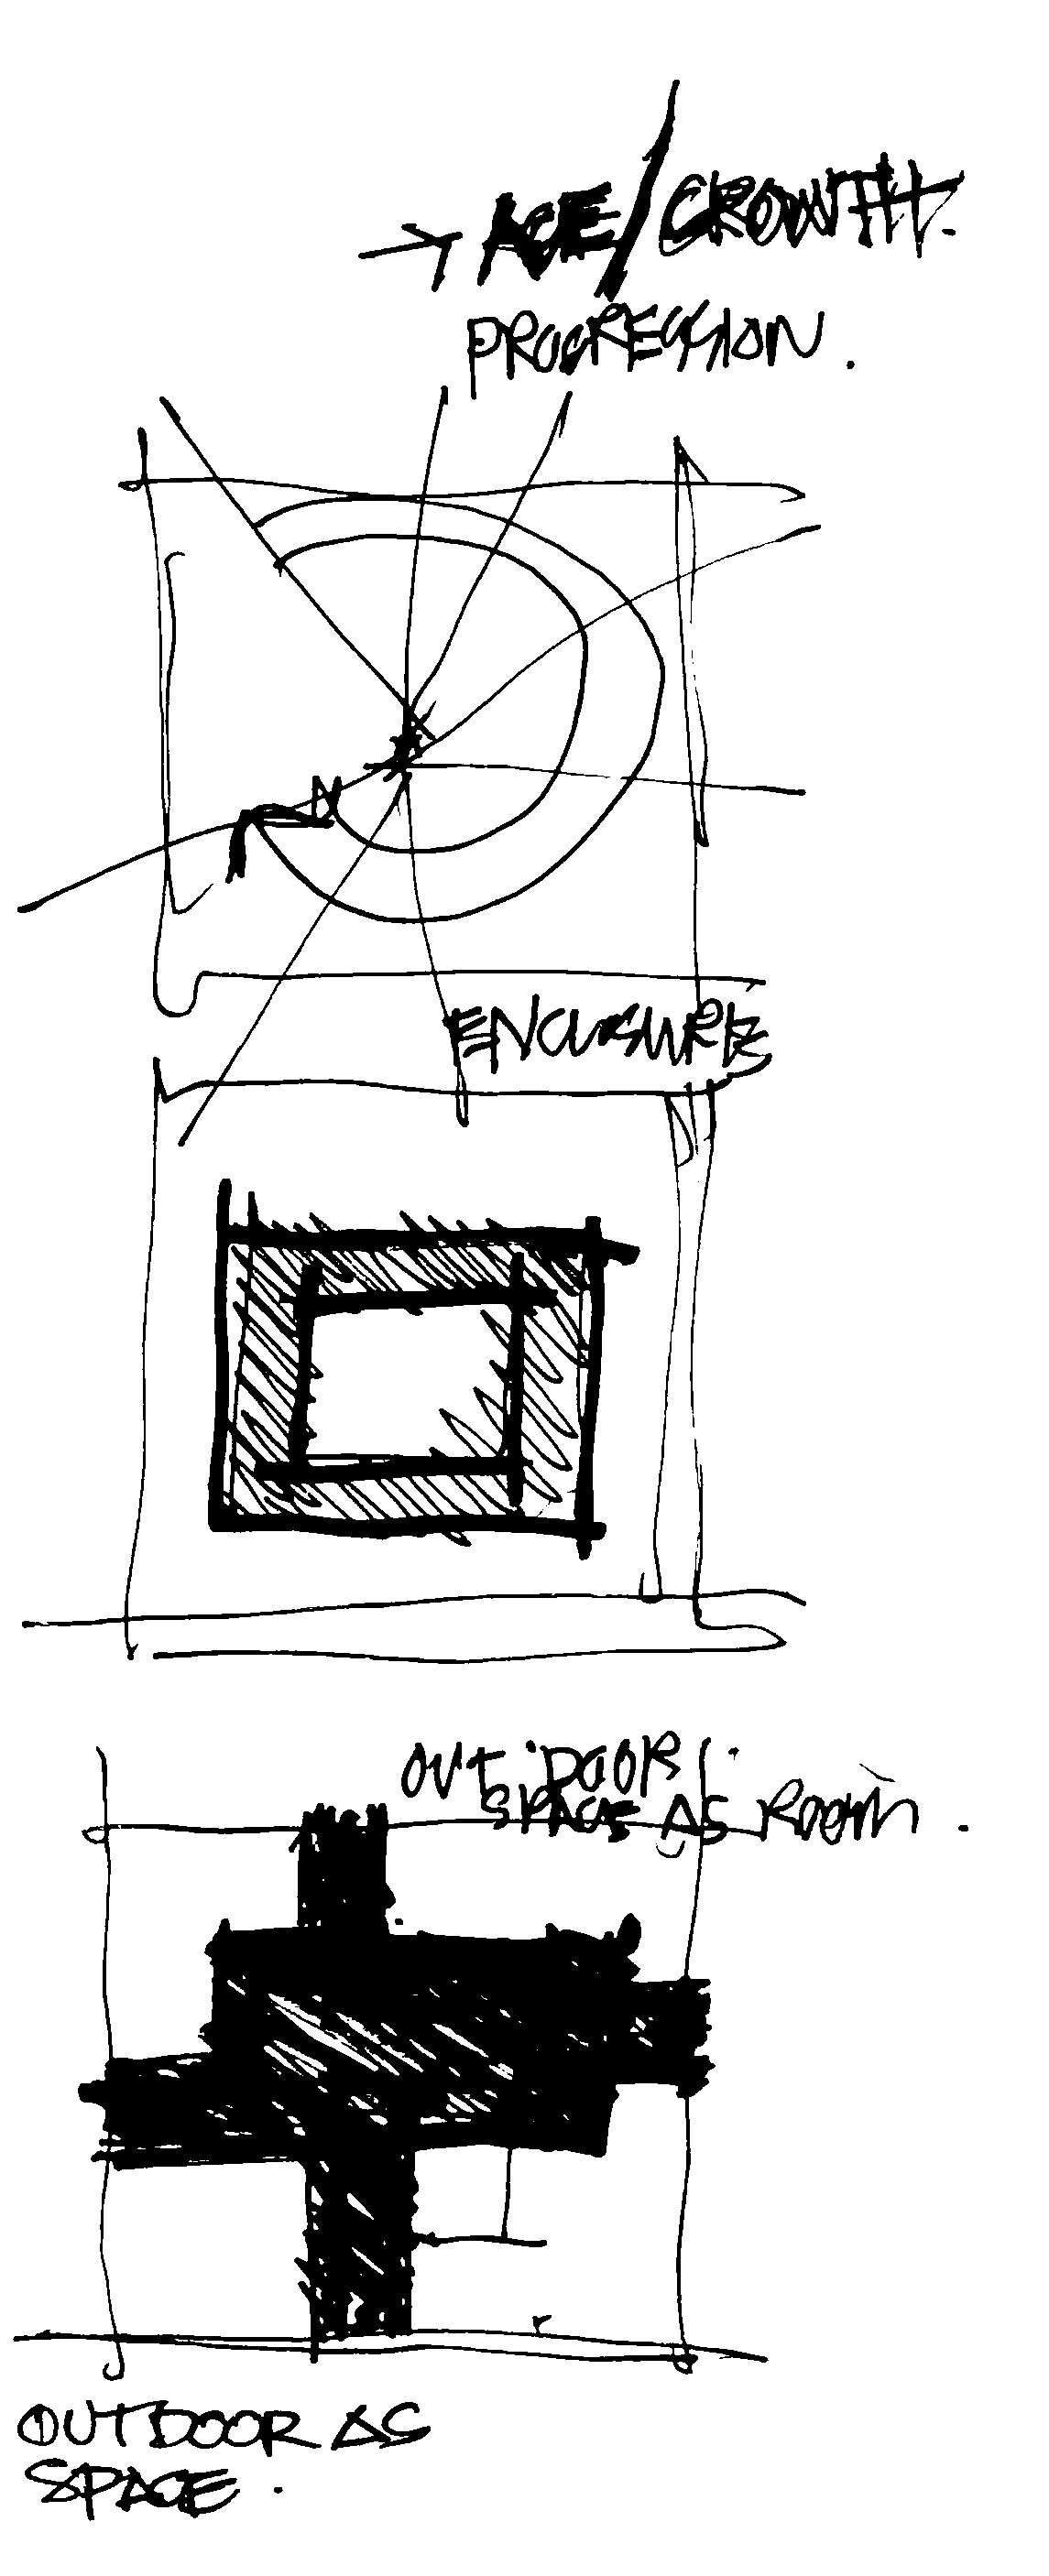 → AGE/GROWTH.
PROGRESSION.
ENCLOSURE
OUTDOOR
SPACE AS ROOM.
OUTDOOR AS
SPACE.